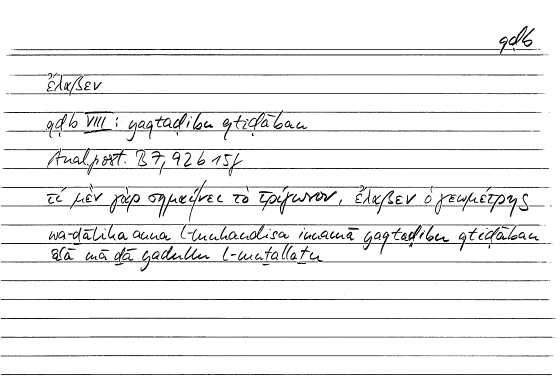 qḍb
ἔλαβεν
qḍb VIII: yaqtaḍibu qtiḍāban
Anal. post. B 7, 92 b 15f
τί μὲν γὰρ σημαίνει τὸ τρίγωνον, ἔλαβεν ὁ γεωμέτρης
wa-ḏālika anna l-muhandisa innamā yaqtaḍibu qtiḍāban
ʿalā mā ḏā yadullu l-muṯallaṯu